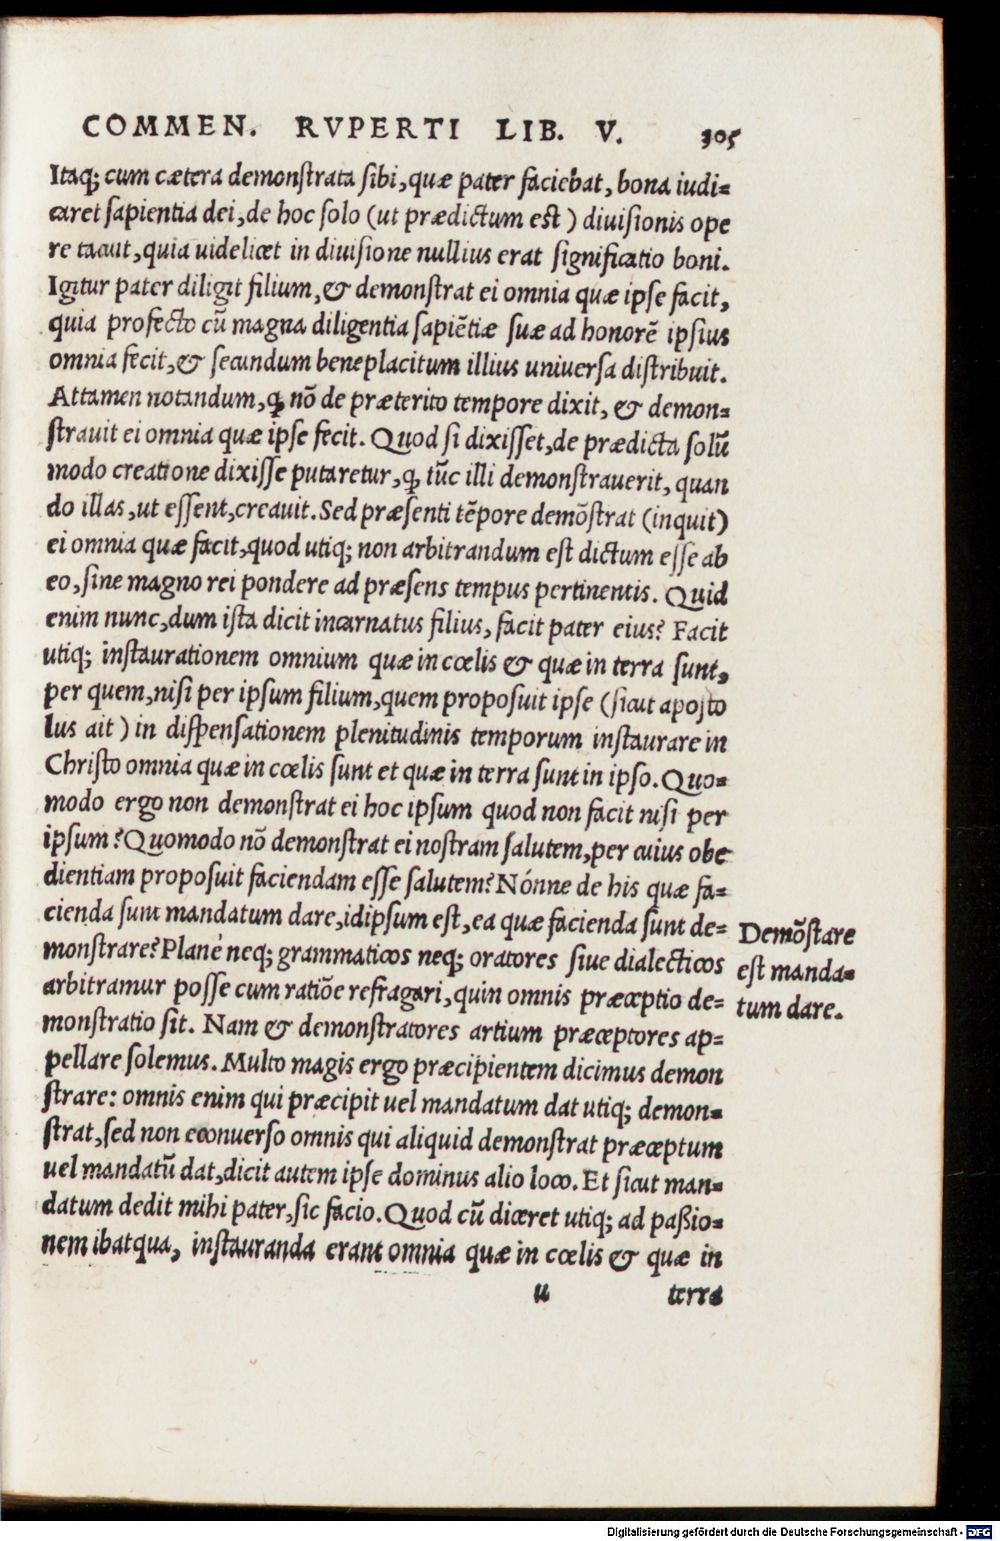 COMMEN. RVPERTI LIB. V. 305
Itaq; cum cætera demonſtrata ſibi, quæ pater faciebat, bona iudi-
caret ſapientia dei, de hoc ſolo (ut prædictum eſt) diuiſionis ope
re tacuit, quia uidelicet in diuiſione nullius erat ſignificatio boni.
Igitur pater diligit filium, & demonſtrat ei omnia quæ ipſe facit,
quia profecto cū magna diligentia ſapiētiæ ſuæ ad honorē ipſius
omnia fecit, & ſecundum beneplacitum illius uniuerſa diſtribuit.
Attamen notandum, ꝙ nō de præterito tempore dixit, & demon-
ſtrauit ei omnia quæ ipſe fecit. Quod ſi dixiſſet, de prædicta ſolū
modo creatione dixiſſe putaretur, ꝙ tūc illi demonſtrauerit, quan
do illas, ut eſſent, creauit. Sed præſenti tēpore demōſtrat (inquit)
ei omnia quæ facit, quod utiq; non arbitrandum eſt dictum eſſe ab
eo, ſine magno rei pondere ad præſens tempus pertinentis. Quid
enim nunc, dum iſta dicit incarnatus filius, facit pater eius? Facit
utiq; inſtaurationem omnium quæ in cœlis & quæ in terra ſunt,
per quem, niſi per ipſum filium, quem propoſuit ipſe (ſicut apoſto
lus ait) in diſpenſationem plenitudinis temporum inſtaurare in
Chriſto omnia quæ in cœlis ſunt et quæ in terra ſunt in ipſo. Quo-
modo ergo non demonſtrat ei hoc ipſum quod non facit niſi per
ipſum? Quomodo nō demonſtrat ei noſtram ſalutem, per cuius obe
dientiam propoſuit faciendam eſſe ſalutem? Nónne de his quæ fa-
cienda ſunt mandatum dare, idipſum eſt, ea quæ facienda ſunt de-
monſtrare? Planè neq; grammaticos neq; oratores ſiue dialecticos
arbitramur poſſe cum ratiōe refragari, quin omnis præceptio de-
monſtratio ſit. Nam & demonſtratores artium præceptores ap-
pellare ſolemus. Multo magis ergo præcipientem dicimus demon
ſtrare: omnis enim qui præcipit uel mandatum dat utiq; demon-
ſtrat, ſed non econuerſo omnis qui aliquid demonſtrat præceptum
uel mandatū dat, dicit autem ipſe dominus alio loco. Et ſicut man-
datum dedit mihi pater, ſic facio. Quod cū diceret utiq; ad paßio-
nem ibat qua, inſtauranda erant omnia quæ in cœlis & quæ in
u terra
Demōſtare
eſt manda-
tum dare.
Digitalisierung gefördert durch die Deutsche Forschungsgemeinschaft - DFG